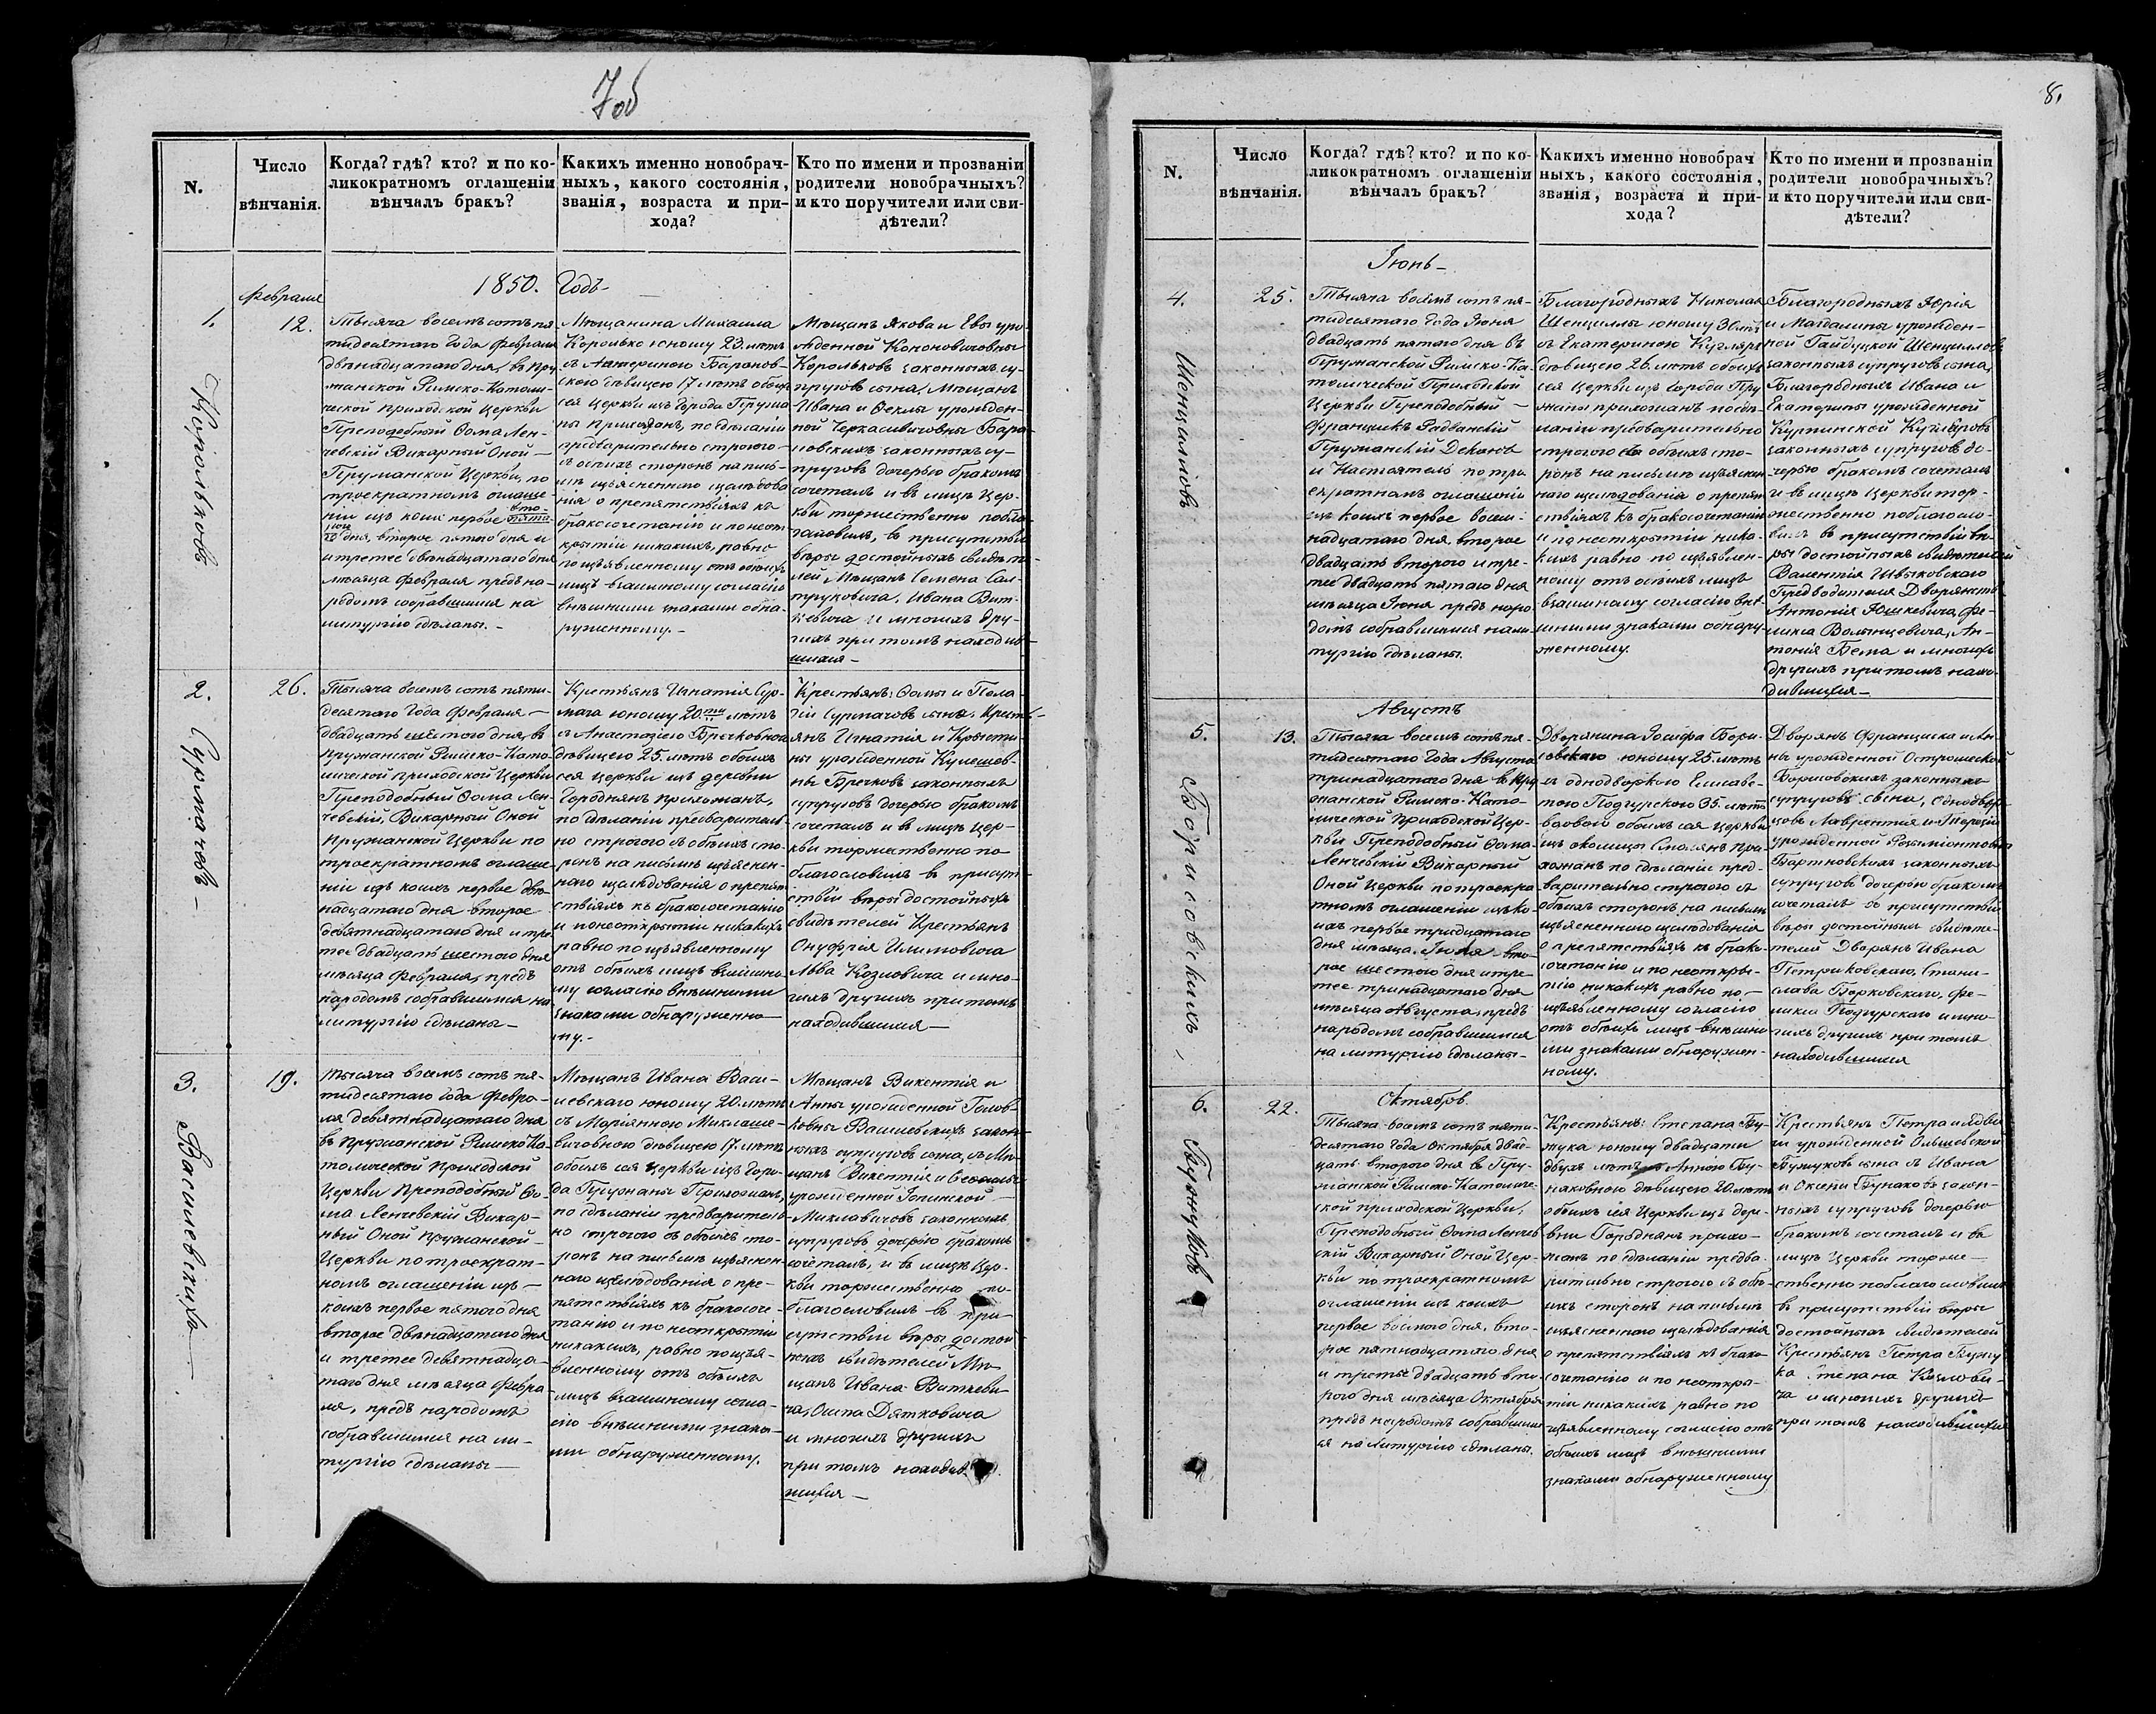 7об
N.
Число
вѣнчанія.
Когда? гдѣ? кто? и по ко-
ликократномъ оглашеніи
вѣнчалъ бракъ?
Какихъ именно новобрач-
ныхъ, какого состоянія,
званія, возраста и при-
хода?
Кто по имени и прозваніи
родители новобрачныхъ?
и кто поручители или сви-
дѣтели?
1850. Годъ
Февраля
1.
12.
Корольковъ
Тысяча восемъ сотъ пя
тидесятаго Года Февраля
двѣнадцатаго дня, въ Пру
жанской Римско-Католи-
ческой приходской Церкви
Преподобный Ѳома Лен-
чевскій Викарный Оной
Пружанской Церкви, по
троекратномъ оглаше-
ніи изъ коихъ первое
дня, второе пятаго дня и
и третее двѣнадцатаго дня
мѣсяца Февраля предъ на-
родомъ собравшимся на
литургію сдѣланы.
Мѣщанина Михаила
Королько юношу 23. лѣтъ
съ Катериною Баранов-
скою дѣвицею 17 лѣтъ обоихъ
сея Церкви изъ Города Пружа
ны Прихожанъ, по сдѣланіи
предварительно строгого
съ обоихъ сторонъ на пись-
мѣ изъясненного изслѣдова
нія о препятствіяхъ къ
бракосочетанію и по неот-
крытіи никакихъ, равно
по изъявленному отъ обоихъ
лицъ взаимному согласію
внѣшними знаками обна-
руженному.
Мѣщанъ Якова и Евы уро-
жденной Кононовичовны
Корольковъ законныхъ су-
пруговъ сына, Мѣщанъ
Ивана и Ѳеклы урожден-
ной Черкасевичовны Бара-
новскихъ законныхъ су-
пруговъ дочерью бракомъ
сочеталъ и въ лицѣ Цер-
кви торжественно побла-
гословилъ, въ присутствіи
вѣры достойныхъ свидѣте-
лей Мѣщанъ Семена Сал-
труковича, Ивана Вит-
кевича и многихъ дру-
гихъ при томъ находив-
шихся
2.
26.
Сурмачевъ
Тысяча восемъ сотъ пяти-
десятаго Года Февраля
двадцать шестого дня, въ
Пружанской Римско-Като-
лической приходской Церкви
Преподобный Ѳома Лен-
чевскій, Викарный Оной
Пружанской Церкви по
троекратномъ оглаше-
ніи изъ коихъ первое двѣ-
надцатаго дня второе
девятнадцатаго дня и тре-
тее двадцать шестого дня
мѣсяца Февраля, предъ
народомъ собравшимся на
литургію сдѣланы
Крестьянъ Игнатія Сур-
мача юношу 20.ти лѣтъ
съ Анастазіею Бречковною
дѣвицею 25. лѣтъ обоихъ
сея Церкви изъ деревни
Городнянъ прихожанъ,
по сдѣланіи предваритель-
но строгого съ обоихъ сто-
ронъ на письмѣ изъяснен-
ного изслѣдованія о препят-
ствіяхъ къ бракосочетанію
и по неоткрытіи никакихъ
равно по изъявленному
отъ обоихъ лицъ взаимно-
му согласію внѣшними
знаками обнаруженно-
му.
Крестьянъ: Ѳомы и Пела-
гіи Сурмачовъ сына, Крест-
янъ Игнатія и Крысти-
ны урожденной Кулешев-
ны Бречковъ законныхъ
супруговъ дочерью бракомъ
сочеталъ и въ лицѣ Цер-
кви торжественно по-
благословилъ въ присут-
ствіи вѣры достойныхъ
свидѣтелей Крестьянъ
Онуфрія Климовича
Льва Козловича и мно-
гихъ другихъ при томъ
находившихся
3.
19.
Василевскихъ
Тысяча восемъ сотъ пя-
тидесятаго Года Февра-
ля девятнадцатаго дня
въ Пружанской Римско-Ка-
толической приходской
Церкви Преподобный Ѳо-
ма Ленчевскій Викар-
ный Оной Пружанской
Церкви по троекрат-
номъ оглашеніи изъ
коихъ первое пятого дня
второе двѣнадцатаго дня
и третее девятнадца-
таго дня мѣсяца Февра-
ля, предъ народомъ
собравшимся на ли-
тургію сдѣланы
Мѣщанъ Ивана Васи-
левскаго юношу 20. лѣтъ
съ Маріянною Миклаше-
вичовною дѣвицею 17. лѣтъ
обоихъ сея Церкви изъ Горо-
да Пружаны Прихожанъ,
по сдѣланіи предваритель-
но строгого съ обоихъ сто-
ронъ на письмѣ изъяснен-
ного изслѣдованія о пре-
пятствіяхъ къ бракосоче-
танію и по неоткрытіи
никакихъ, равно по изъя-
вленному отъ обоихъ
лицъ взаимному согла-
сію внѣшними знака-
ми обнаруженному.
Мѣщанъ Викентія и
Анны урожденной Голов-
ковны Василевскихъ закон-
ныхъ супруговъ сына, съ Мѣ-
щанъ Викентія и
урожденной
законныхъ
супруговъ дочерью бракомъ
сочеталъ, и въ лицѣ Цер-
кви торжественно по-
благословилъ въ при-
сутствіи вѣры достой
ныхъ свидѣтелей Мѣ-
щанъ Ивана Виткеви-
ча, Осипа Дятковича
и многихъ другихъ
при томъ находив-
шихся
8.
N.
Число
вѣнчанія.
Когда? гдѣ? кто? и по ко-
ликократномъ оглашеніи
вѣнчалъ бракъ?
Какихъ именно новобрач
ныхъ, какого состоянія,
званія, возраста и при-
хода?
Кто по имени и прозваніи
родители новобрачныхъ?
и кто поручители или сви-
дѣтели?
Іюнь
4.
25.
Шенцилловъ
Тысяча восемъ сотъ пя-
тидесятаго Года Іюня
двадцать пятого дня въ
Пружанской Римско-Ка-
толической Приходской
Церкви Преподобный
Францишкъ Радванскій
Пружанскій Деканъ
и Настоятель по тро-
екратномъ оглашеніи
изъ коихъ первое восем-
надцатаго дня, второе
двадцать второго и тре-
тее двадцать пятого дня
мѣсяца Іюня предъ наро-
домъ собравшимся на ли-
тургію сдѣланы.
Благородныхъ Николая
Шенциллы юношу 30 лѣтъ
съ Екатериною Кугляръ
дѣвицею 26. лѣтъ обоихъ
сея Церкви изъ Города Пру
жаны прихожанъ по сдѣ-
ланіи предварительно
строгого съ обоихъ сто-
ронъ на письмѣ изъяснен
наго изслѣдованія о препят
ствіяхъ къ бракосочетанію
и по неоткрытіи ника-
кихъ равно по изъявлен-
ному отъ обоихъ лицъ
взаимному согласію внѣ-
шними знаками обнару-
женному.
Благородныхъ Юрія
и Магдалины урожден-
ной Гайдуцкой Шенцилловъ
законныхъ супруговъ сына,
Благородныхъ Ивана и
Екатерины урожденной
Курпинской Кугляровъ
законныхъ супруговъ до-
черью бракомъ сочеталъ
и въ лицѣ Церкви тор-
жественно поблагосло-
вилъ въ присутствіи вѣ-
ры достойныхъ свидѣтелей
Валентія Швыковскаго
Предводителя Дворянства
Антонія Юшкевича, Фе-
ликса Волынцевича, Ан-
тонія Бема и многихъ
другихъ при томъ нахо-
дившихся
Августъ
5.
13.
Борисовскихъ
Тысяча восемъ сотъ пя-
тидесятаго Года Августа
тринадцатаго дня въ Пру
жанской Римско-Като-
лической Приходской Цер-
кви Преподобный Ѳома
Ленчевскій Викарный
Оной Церкви по троекра-
тномъ оглашеніи изъ ко-
ихъ первое тридцатаго
дня мѣсяца Іюля вто-
рое шестого дня и тре-
тее тринадцатаго дня
мѣсяца Августа, предъ
народомъ собравшимся
на литургію сдѣланы
Дворянина Іосифа Бори-
совскаго юношу 25. лѣтъ
съ однодворкою Елисаве-
тою Подгурскою 35. лѣтъ
вдовою обоихъ сея Церкви
изъ околицы Смолянъ при-
хожанъ по сдѣланіи пред-
варительно строгого съ
обоихъ сторонъ на письмѣ
изъясненного изслѣдованія
о препятствіяхъ къ брако-
сочетанію и по неоткры-
тію никакихъ равно по
изъявленному согласію
отъ обоихъ лицъ внѣшни-
ми знаками обнаружен-
ному.
Дворянъ Франциска и Ан-
ны урожденной Острошекой
Борисовскихъ законныхъ
супруговъ сына, Однодвор
цовъ Лаврентія и Терезіи
урожденной
Бартновскихъ законныхъ
супруговъ дочерью бракомъ
сочеталъ въ присутствіи
вѣры достойныхъ свидѣте-
телей Дворянъ Ивана
Петриковскаго, Стани-
слава Борковскаго, Фе-
ликса Подгурскаго и мно-
гихъ другихъ при томъ
находившихся
6.
22.
Бужуковъ
Октябрь.
Тысяча восемъ сотъ пяти-
десятаго Года Октября двад-
цать второго дня въ Пру-
жанской Римско-Католиче-
ской приходской Церкви,
Преподобный Ѳома Ленчев
скій Викарный Оной Цер-
кви по троекратномъ
оглашеніи изъ коихъ
первое восмого дня, вто-
рое пятнадцатаго дня
и третье двадцать вто-
рого дня мѣсяца Октября
предъ народомъ собравшим
ся на Литургію сдѣланы.
Крестьянъ: Степана Бу-
жука юношу двадцати
двухъ лѣтъ съ Анною Бу-
наковною дѣвицею 20. лѣтъ
обоихъ сея Церкви изъ дере-
вни Городнянъ прихо-
жанъ по сдѣланіи предва-
рительно строгого съ обо-
ихъ сторонъ на письмѣ
изъясненного изслѣдованія
о препятствіяхъ къ брако-
сочетанію и по неоткры-
тіи никакихъ равно по
изъявленному согласію отъ
обоихъ лицъ внѣшними
знаками обнаруженному
Крестьянъ Петра и Ядви-
ги урожденной Ольшевской
Бужуковъ сына съ Ивана
и Оксени Бунаковъ закон-
ныхъ супруговъ дочерью
бракомъ сочеталъ и въ
лицѣ Церкви торже-
ственно поблагословилъ
въ присутствіи вѣры
достойныхъ свидѣтелей
Крестьянъ Петра Бужу
ка Степана Козлови-
ча и многихъ другихъ
при томъ находившихся